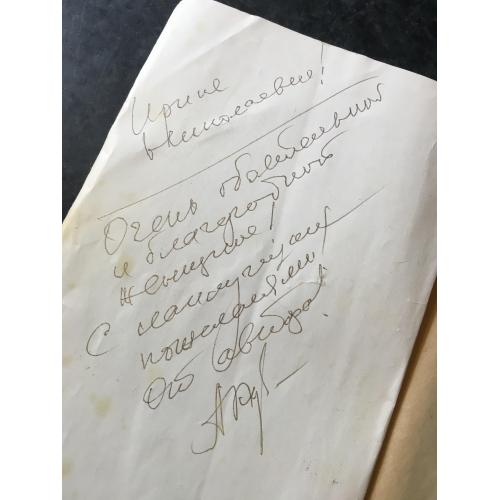 Ирине
Николаевне!
Очень обаятельной
и благородной
женщине!
С наилучшими
пожеланиями
От автора!